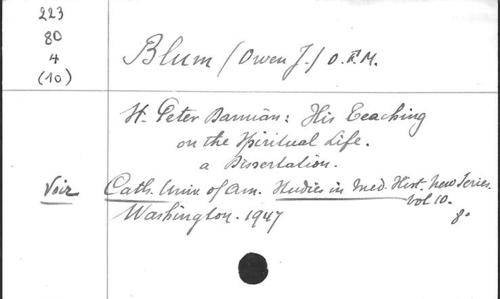 223
80
4
(10)
Blum (Owen J.) O.F.M.
St. Peter Damian: His Teaching
on the Spiritual Life.
a Dissertation.
Voir Cath. Univ of Am. Studies in Med. Hist. New Series.
Vol 10.
Washington. 1947 8°